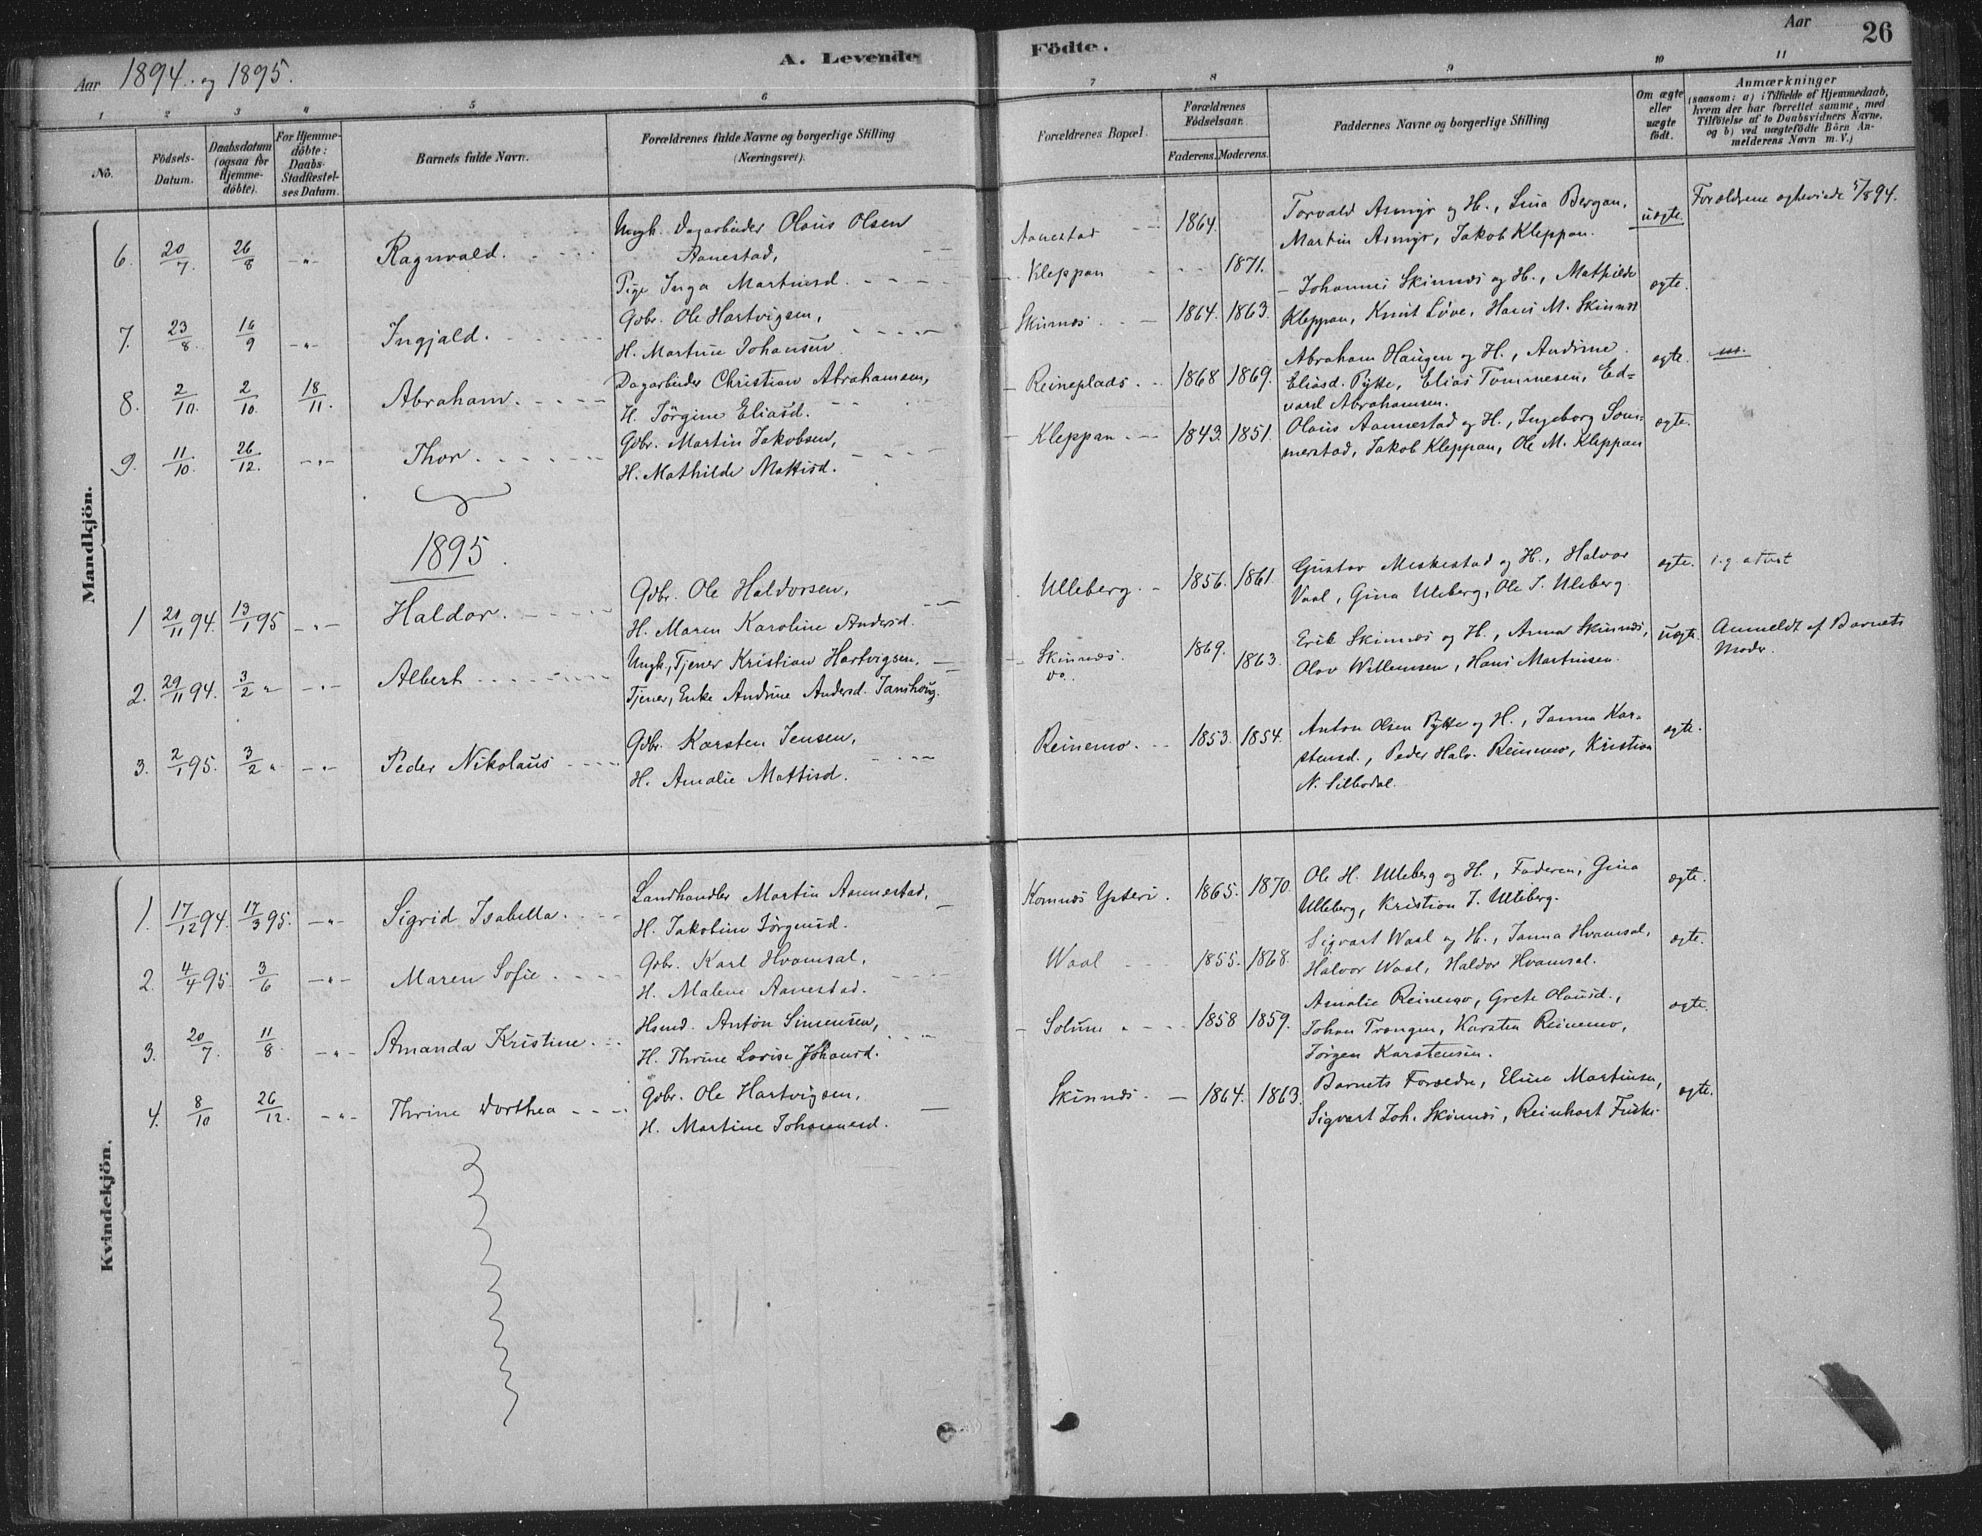 Aar 1894. og 1895.
A. Levende Födte.
Aar
26
1 2 3 4 5 6 7 8 9 10 11
No.
Födsels-Datum.
Daabsdatum (ogsaa for Hjemmedöbte).
For Hjemmedöbte: Daabs-Stadfæstelses Datum.
Barnets fulde Navn.
Forældrenes fulde Navne og borgerlige Stilling (Næringsvei).
Forældrenes Bopæl.
Forældrenes Födselsaar.
Faderens. Moderens.
Faddernes Navne og borgerlige Stilling
Om ægte eller uægte födt.
Anmærkninger
(saasom: a) i Tilfælde af Hjemmedaab, hvem der har forrettet samme, med Tilföielse af to Daabsvidners Navne, og b) ved uægtefödte Börn Anmelderens Navn m. V.)
Mandkjön.
6. 20/7. 26/8 -"- Ragnvald.
Ungk. Dagarbeider Olaus Olsen
Aanestad,
Pige Inga Martinsd.
Aanestad 1864.
Kleppan 1871.
Torvald Asmyr og H., Lina Bergan,
Martin Asmyr, Jakob Kleppan.
uægte.
Forældrene ægteviede 5/8 94.
7. 23/8. 16/9 -"- Ingjald.
Gdbr. Ole Hartvigsen,
H. Martine Johansen
Skinnes. 1864. 1863.
Johannes Skinnes og H., Mathilde
Kleppan, Knut Löve, Hans M. Skinnes
ægte.
8. 2/10. 2/10. 18/11. Abraham.
Dagarbeider Christian Abrahamsen,
H. Jörgine Eliasd.
Reineplads. 1868 1869.
Abraham Haugen og H., Andrine
Eliasd. Pytte, Elias Tommesen, Ed-
vard Abrahamsen.
ægte.
9. 11/10. 26/12. -"- Thor.
Gdbr. Martin Jakobsen,
H. Mathilde Mattisd.
Kleppan. 1843. 1851.
Olaus Aannestad og H., Ingeborg Som-
merstad, Jakob Kleppan, Ole M. Kleppan
ægte.
1895.
1 20/11 94. 13/1 95 -"- Haldor.
Gdbr. Ole Haldorsen,
H. Maren Karoline Andersd.
Ulleberg. 1856. 1861.
Gustav Meskestad og H., Halvor
Vaal, Gina Uleberg, Ole J. Uleberg.
ægte.
2. 29/11 94. 3/2 " -"- Albert
Ungk., Tjener Kristian Hartvigsen,
Tjener, Enke Andrine Andersd. Janshoug.
Skinnes. 1869.
Do. 1863.
Erik Skinnes og H., Anna Skinnes,
Olav Willemsen, Hans Martinsen.
uægte.
Anmeldt af Barnets
Moder.
3. 2/1 95. 3/2 " -"- Peder Nikolaus
Gdbr. Karsten Jensen,
H. Amalie Mattisd.
Reinemo. 1853. 1854.
Anton Olsen Pytte og H., Janna Kar-
stensd., Peder Halv. Reinemo, Kristian
N. Silbodal.
ægte.
Kvindekjön.
1. 17/12 94. 17/3 95. -"- Sigrid Isabella.
Landhandler Martin Aannestad,
H. Jakobine Jörgensd.
Komnes Ysteri. 1865. 1870.
Ole H. Ulleberg og H., Faderen, Gina
Ulleberg, Kristian J. Ulleberg.
ægte.
2. 4/4 95. 3/6 -"- Maren Sofie
Gdbr. Karl Hvamsal,
H. Malene Aanestad.
Waal 1855. 1868.
Sigvart Waal og H., Janna Hvamsal,
Halvor Waal, Haldor Hvamsal.
ægte.
3. 20/7. 11/8 -"- Amanda Kristine
Hsmd. Anton Simensen,
H. Thrine Lovise Johansd.
Solum 1858 1859.
Amalie Reinemo, Grete Olausd.,
Johan Trangen, Karsten Reinemo,
Jörgen Karstensen.
ægte.
4. 8/10 26/12. -"- Thrine Dorthea
Gdbr. Ole Hartvigsen,
H. Martine Johannesd.
Skinnes. 1864. 1863.
Barnets Forældre, Eline Martinsen,
Sigvart Joh. Skinnes, Reinhart
ægte.